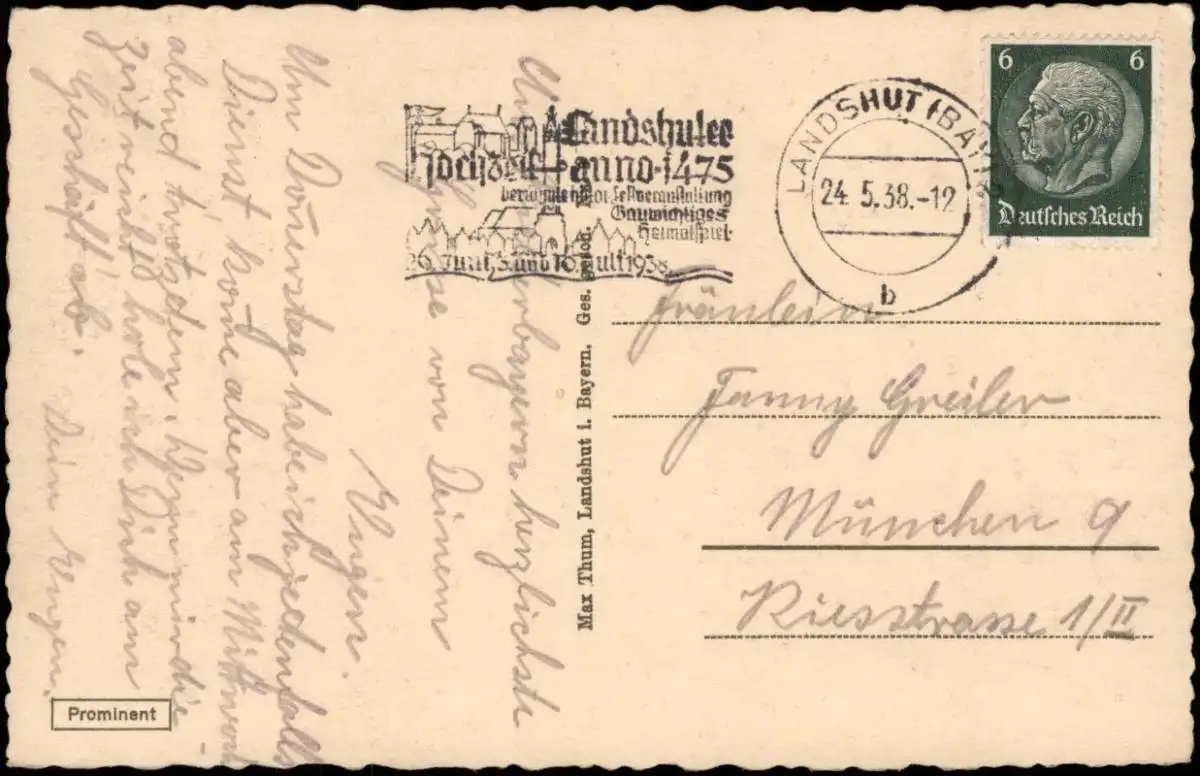 Aus Niederbayern herzlichste
Grüsse von Deinem
Eugen.
Am Donnerstag habe ich jedenfalls
Dienst, kom̄e aber am Mittwoch-
abend trotzdem. Wenn mir die
Zeit reicht hole ich Dich am
Geschäft ab.
Dein Eugen.
Prominent
Max Thum, Landshut i. Bayern. Ges. gesch.
Landshuter
Hochzeit anno 1475
berühmte histor. Festveranstaltung
Gauwichtiges
Heimatspiel
26. Juni, 3. und 10. Juli 1938
LANDSHUT (BAY)
24.5.38.-12
b
6 6
Deutsches Reich
Fräulein
Fanny Greiler
München 9
Riesstrasse 1/II